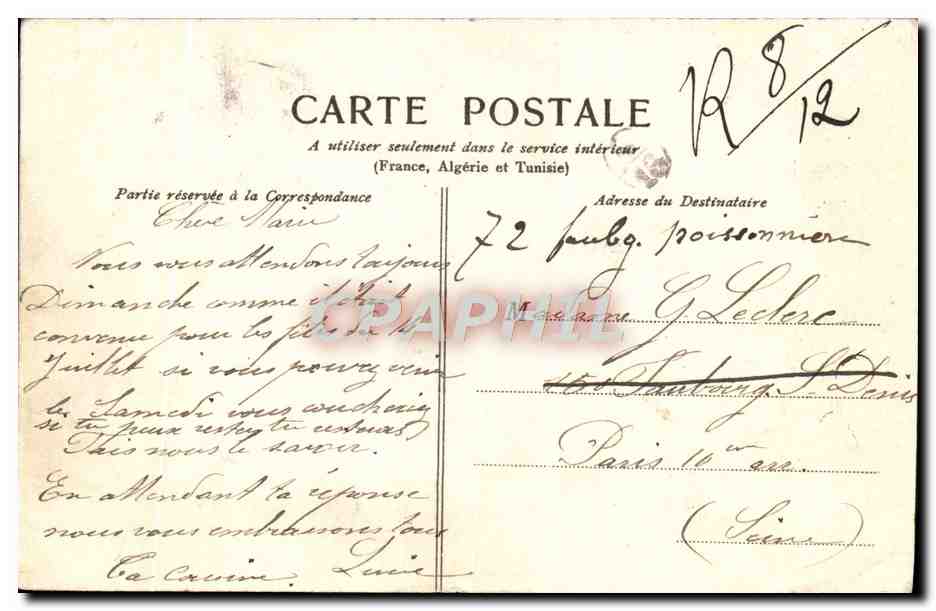 R 8/12
CARTE POSTALE
A utiliser seulement dans le service intérieur
(France, Algérie et Tunisie)
Partie réservée à la Correspondance
Chère Marie
Nous vous attendons toujours
Dimanche comme il était
convenu pour les fêtes du 14
Juillet si vous pouvez venir
le Samedi vous coucheriez
si tu peux rester tu resteras
Fais nous le savoir.
En attendant ta réponse
nous vous embrassons tous
Ta cousine.
Adresse du Destinataire
72 faubg. poissonnière
Madame G. Leclerc
150 Faubourg St Denis
Paris 10 er arr.
(Seine)
CPAPHIL